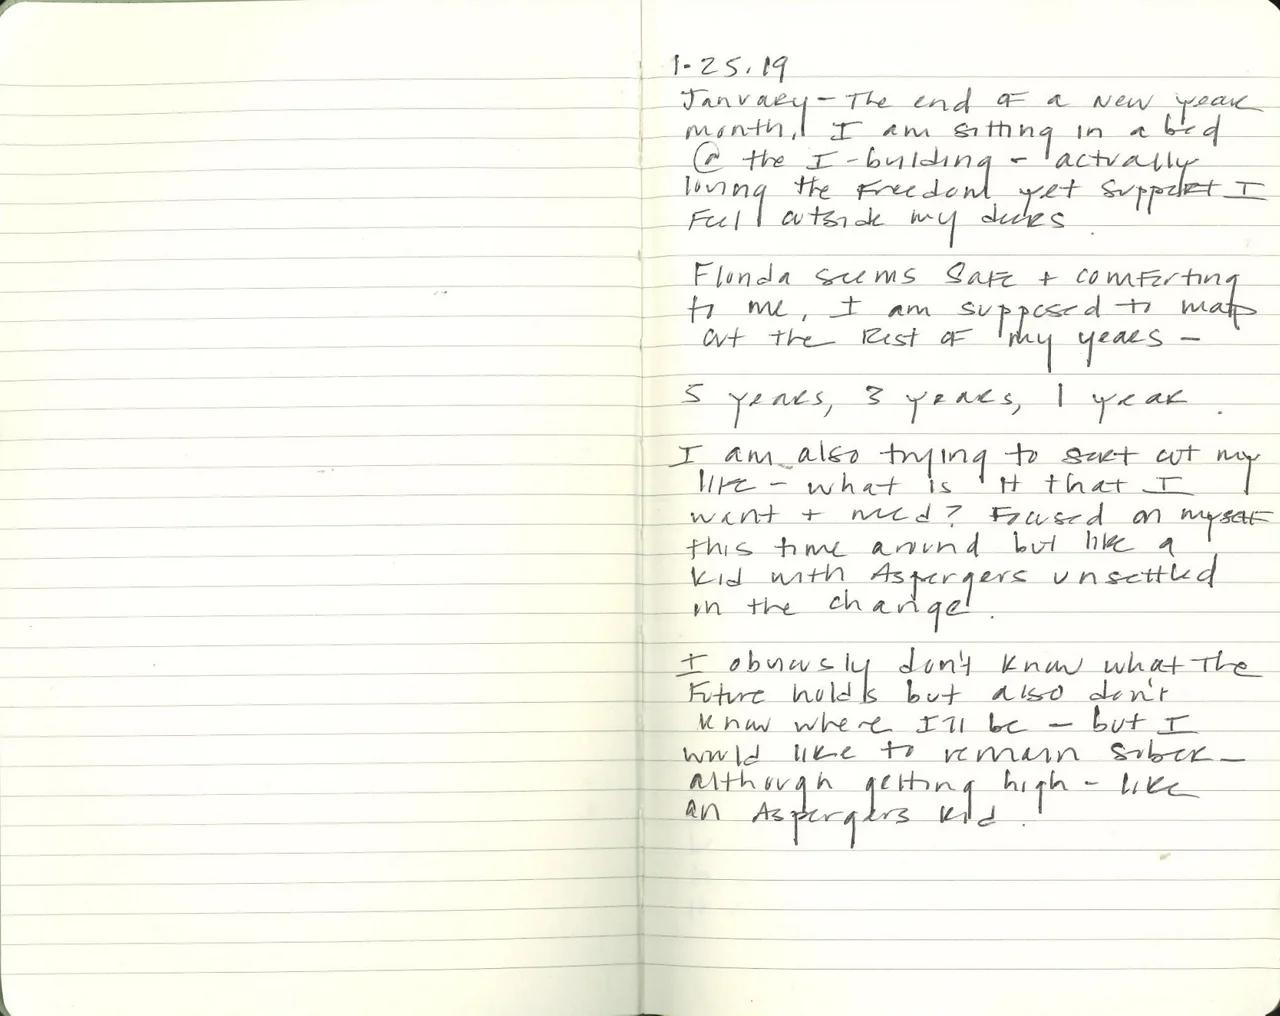 1.25.19
January - The end of a new year
month, I am sitting in a bed
@ the I-building - actually
loving the freedom yet support I
feel outside my doors.
Florida seems safe + comforting
to me, I am supposed to map
out the rest of my years -
5 years, 3 years, 1 year.
I am also trying to sort out my
life - what is it that I
want + need? Focused on myself
this time around but like a
kid with Aspergers unsettled
in the change.
I obviously don't know what the
future holds but also don't
know where I'll be - but I
would like to remain sober -
although getting high - like
an Aspergers kid.